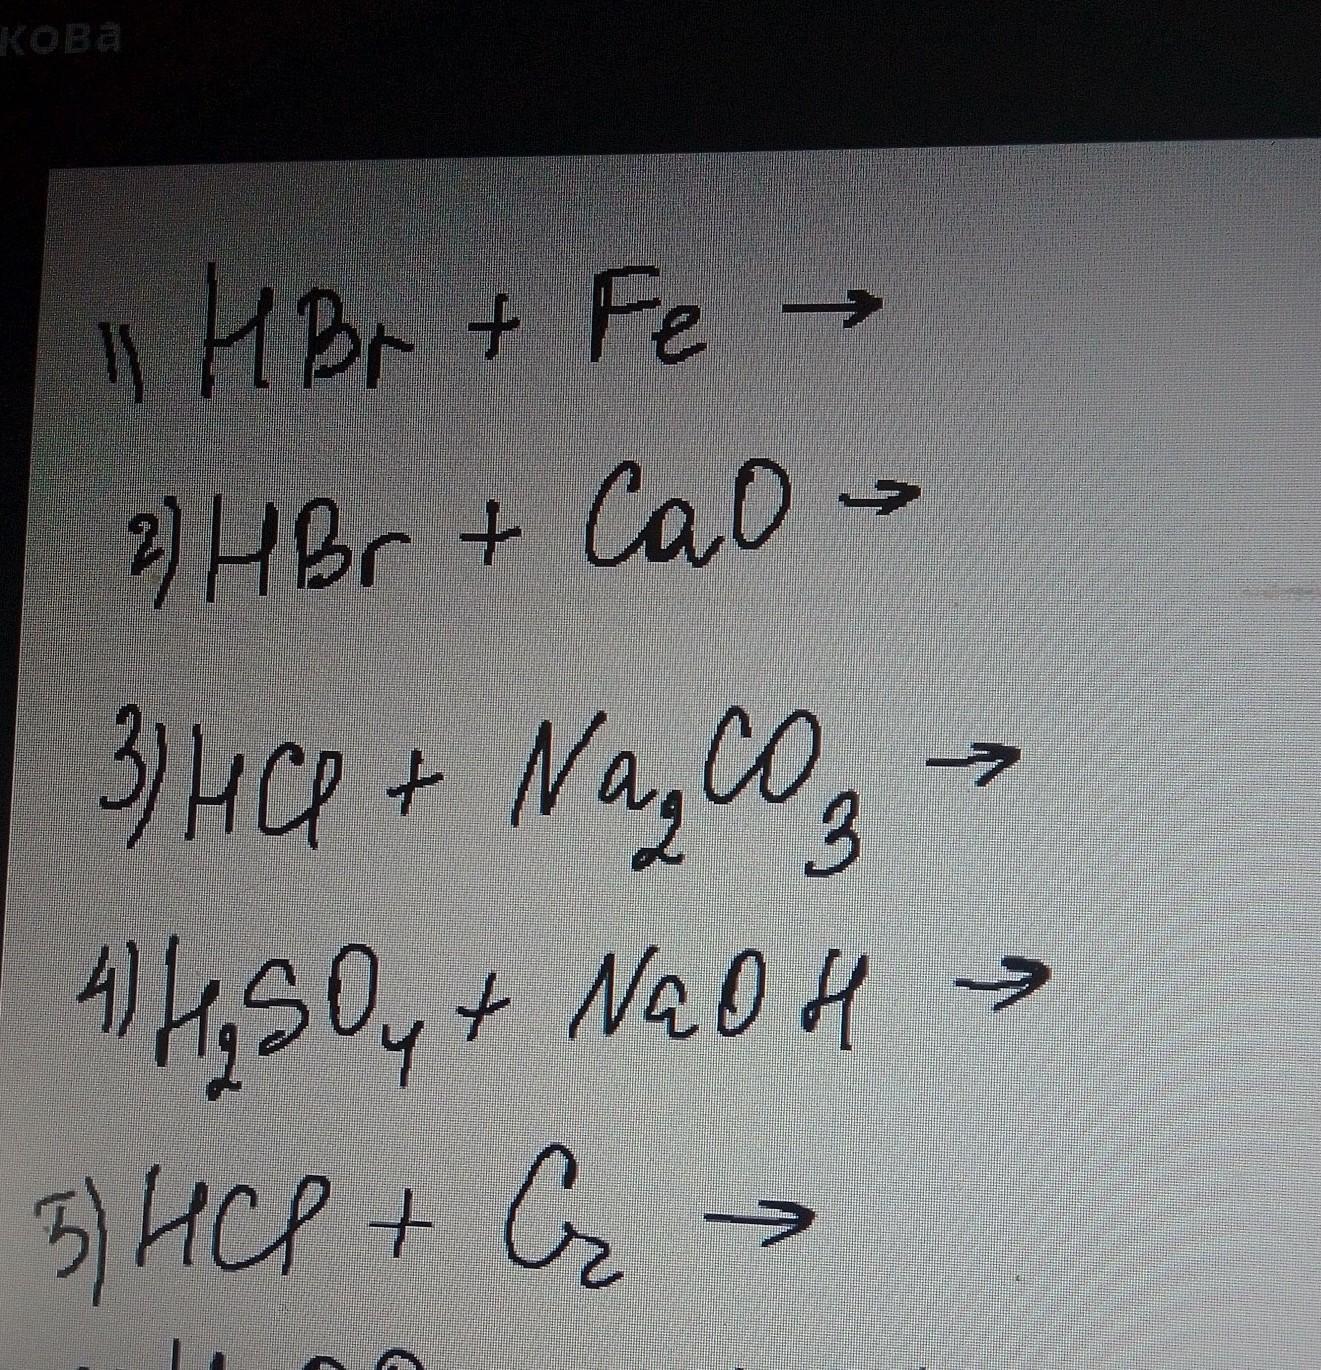 кова
1) HBr + Fe →
2) HBr + CaO →
3) HCl + Na₂CO₃ →
4) H₂SO₄ + NaOH →
5) HCl + Cr →